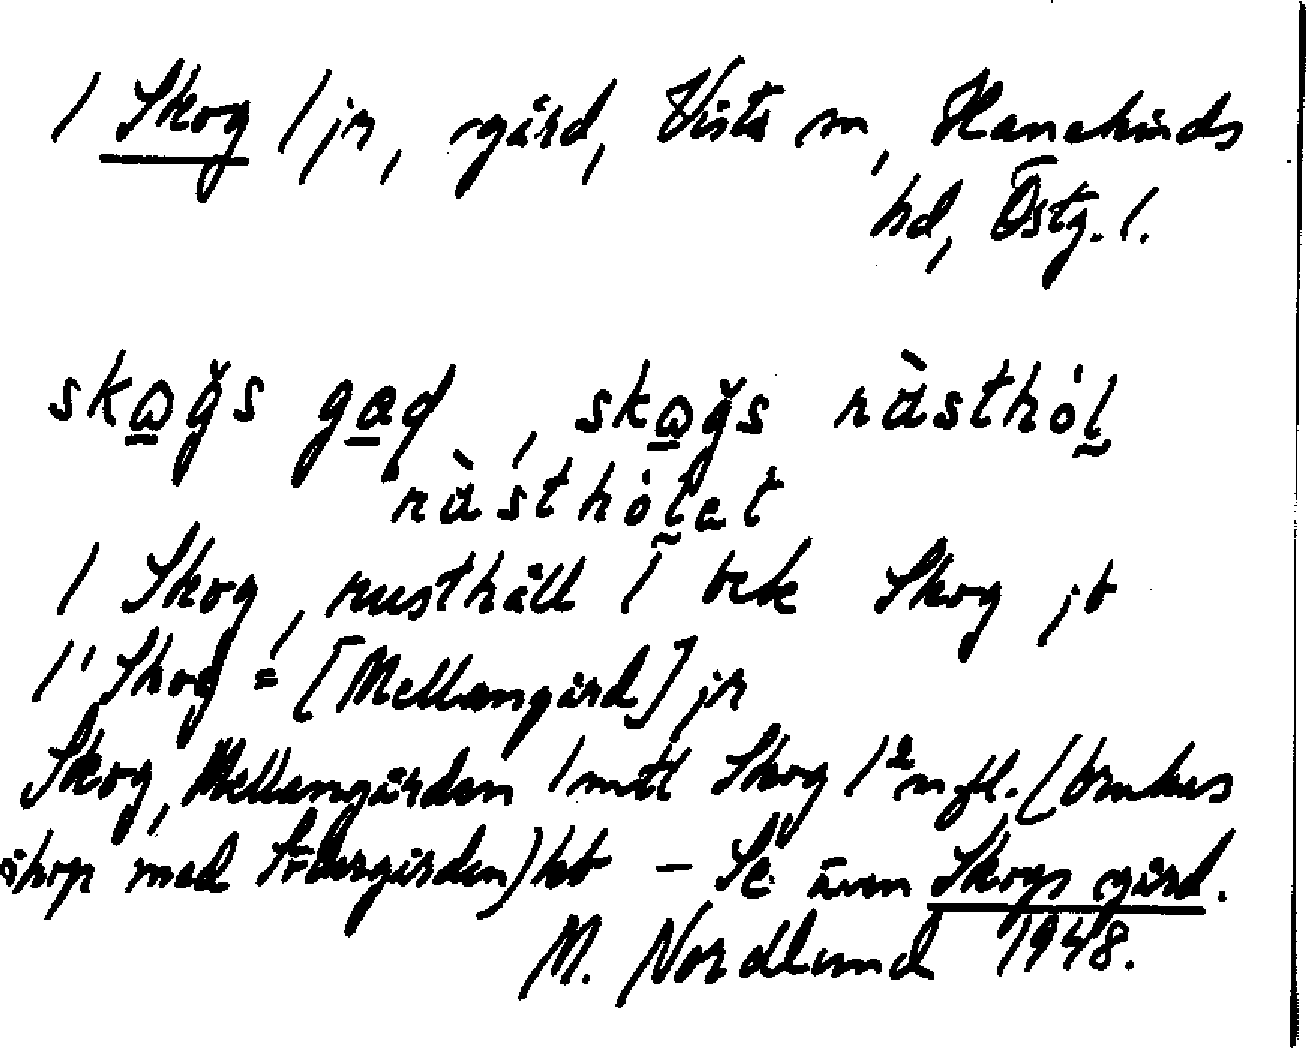 1 Skog 1 jr, gård, Vists sn, Hanekinds
hd, Östg. l.
skøǧs gaḍ, skøǧs ràsthól̰
ràsthól̰et
1 Skog, rusthåll 1 bek Skog jb
1¹ Skog = [Mellangård] jr
Skog, Mellangården 1 mtl Skog 1² m.fl. (
ihop med Södergården) kb – Se även Skogs gård.
M. Nordlund 1948.